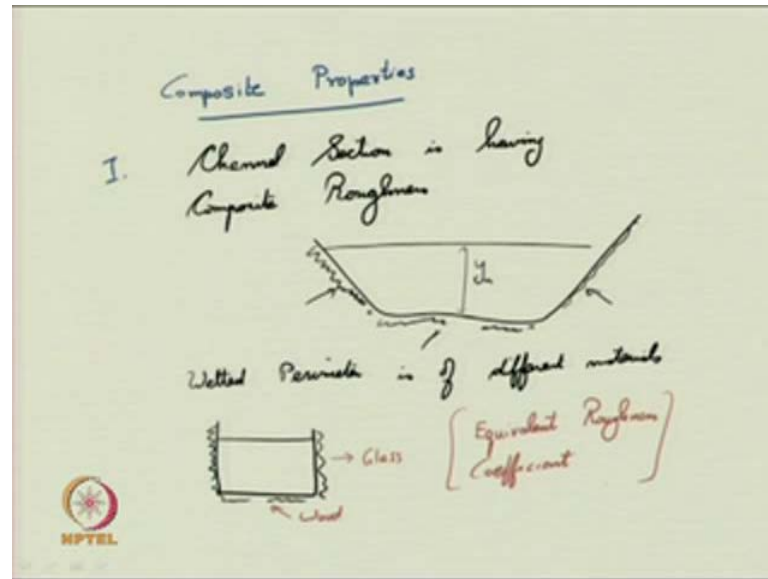 Composite Properties
I. Channel Section is having
Composite Roughness
yn
Wetted Perimeter is of different materials
→ Glass
Wood
[Equivalent Roughness
Coefficient]
NPTEL